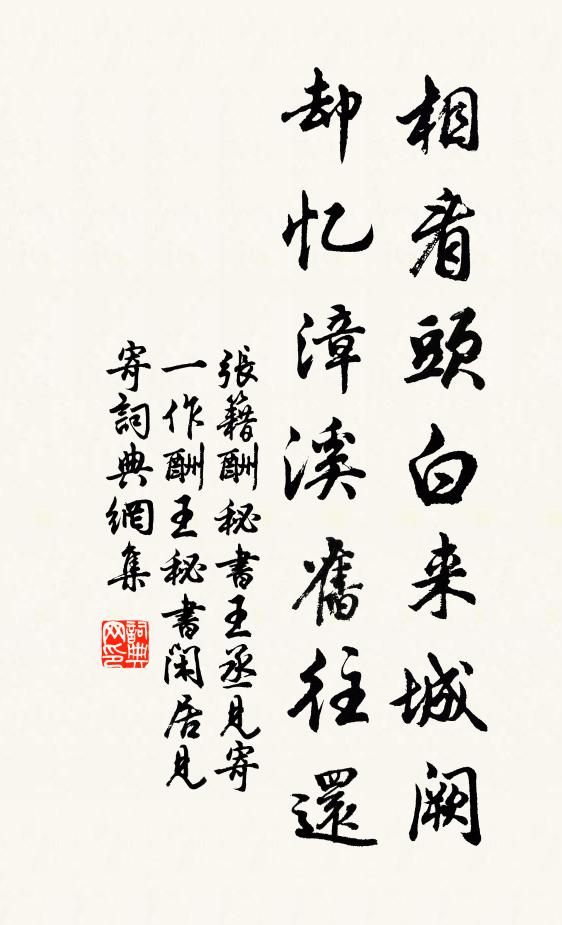 相看頭白来城阙
却忆漳溪舊往還
張籍酬秘書王丞見寄
一作酬王秘書閑居見
寄詞典網集
詞典
网印